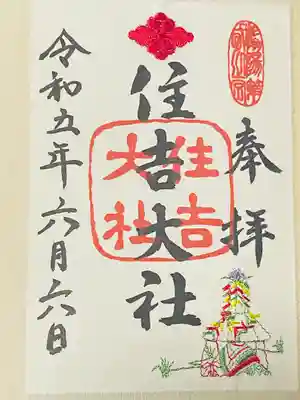 奉拝
住吉大社
住吉
大社
令和五年六月六日